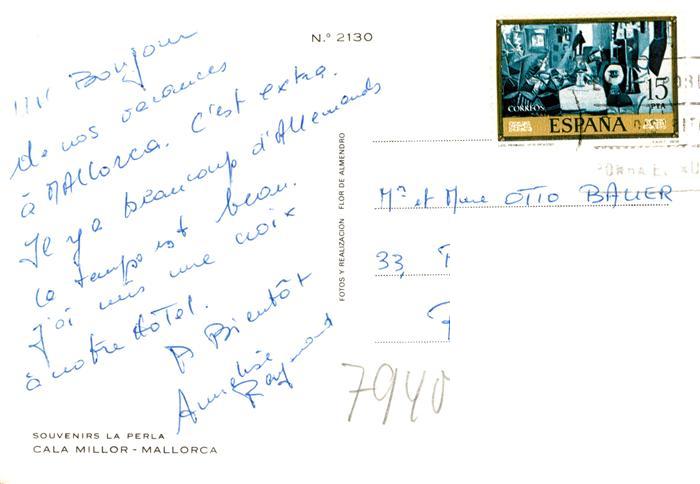 N.º 2130
Bonjour
de nos vacances
à MAllorca. C'est extra.
Il y a beaucoup d'Allemands
Le temps est beau.
J'ai mis une croix
à notre Hôtel.
A Bientôt
Annelise
Raymond
SOUVENIRS LA PERLA
CALA MILLOR - MALLORCA
FOTOS Y REALIZACION FLOR DE ALMENDRO
CORREOS
15
PTA
ESPAÑA
Mr et Mme OTTO BAUER
33,
7940